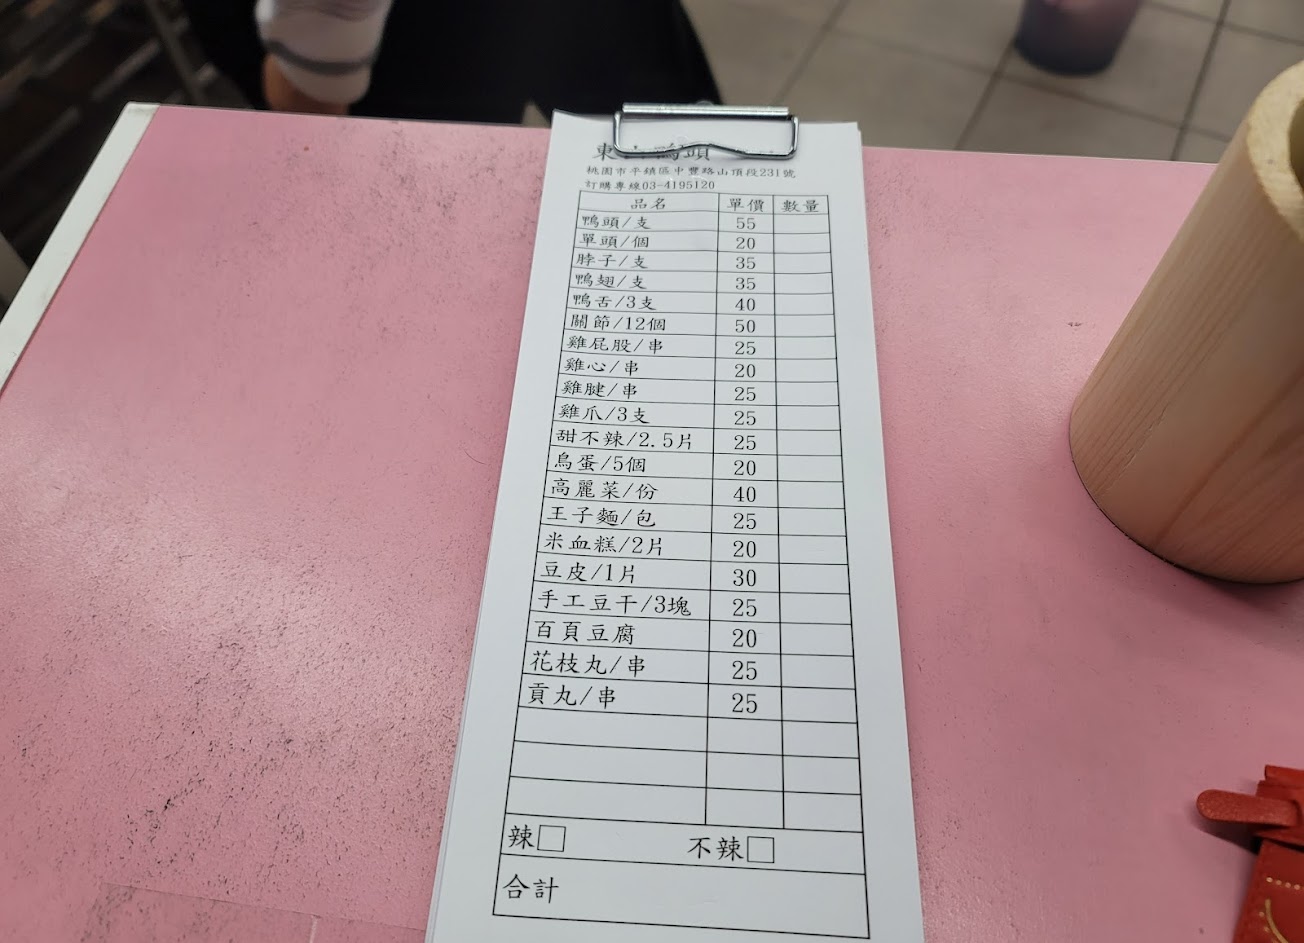 東山鴨頭
桃園市平鎮區中豐路山頂段231號
訂購專線03-4195120
品名 單價 數量
鴨頭/支 55
單頭/個 20
脖子/支 35
鴨翅/支 35
鴨舌/3支 40
關節/12個 50
雞屁股/串 25
雞心/串 20
雞腱/串 25
雞爪/3支 25
甜不辣/2.5片 25
鳥蛋/5個 20
高麗菜/份 40
王子麵/包 25
米血糕/2片 20
豆皮/1片 30
手工豆干/3塊 25
百頁豆腐 20
花枝丸/串 25
貢丸/串 25
辣□ 不辣□
合計